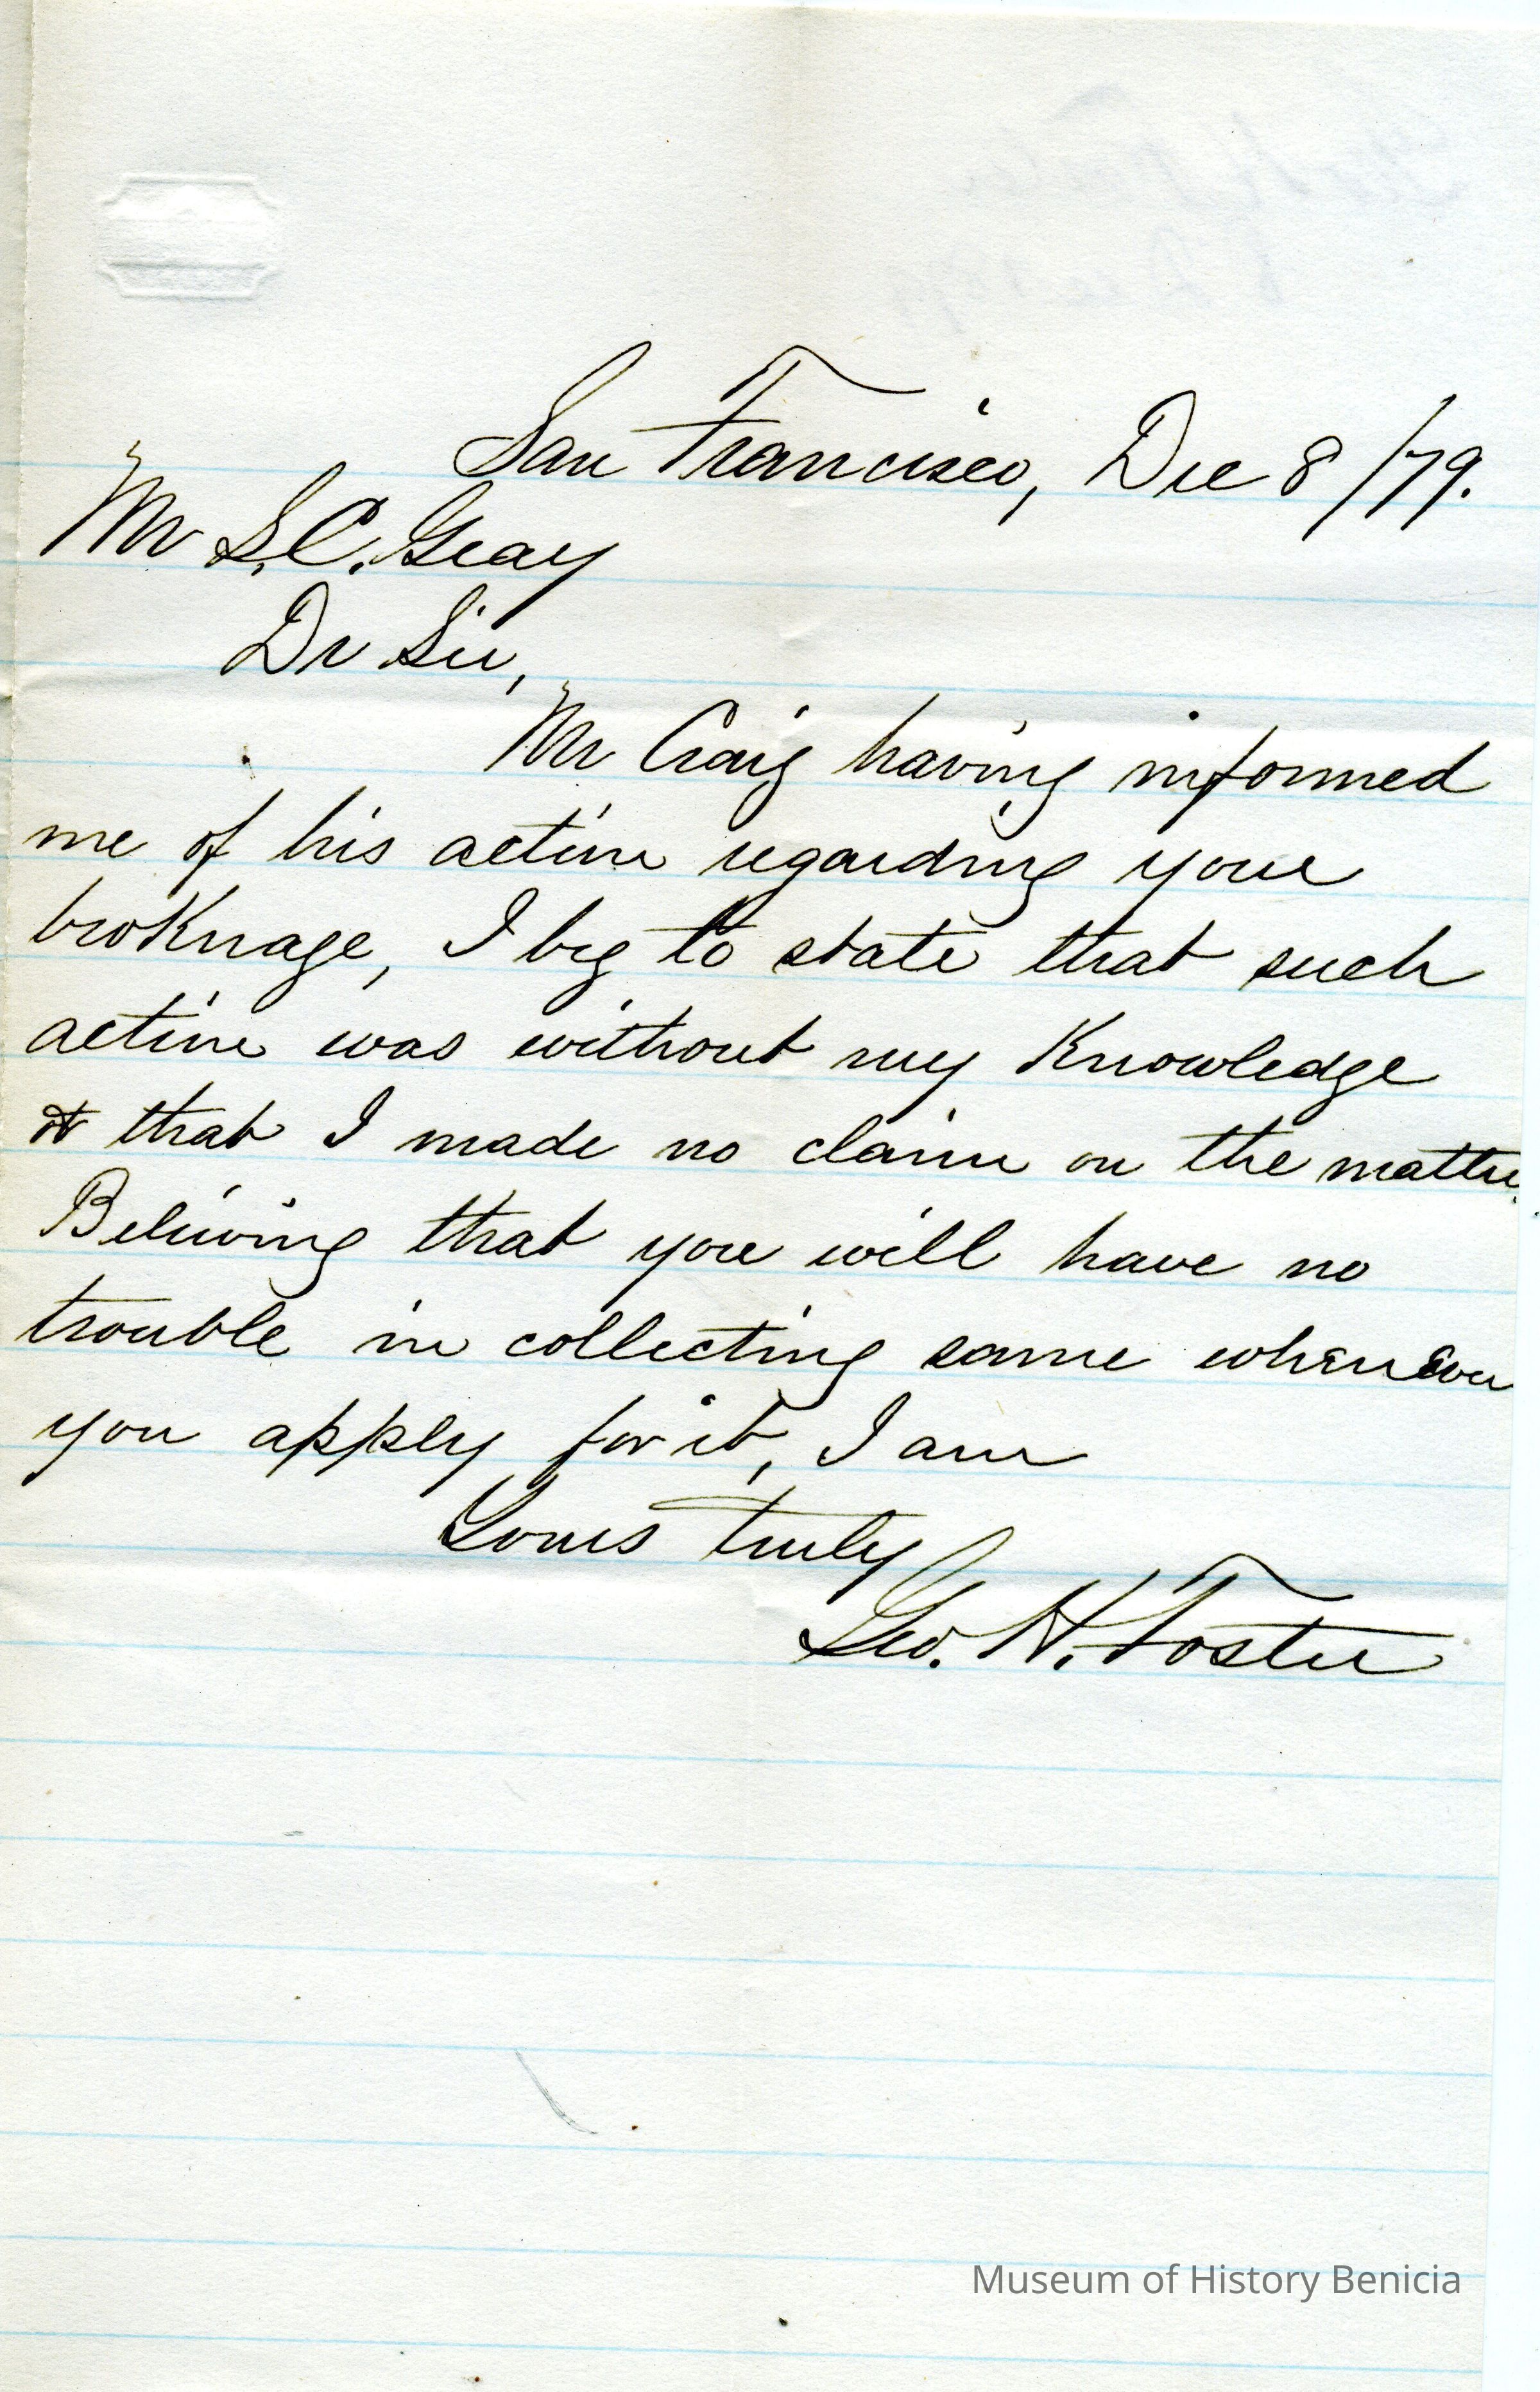 San Francisco, Dec 8/79.
Mr S.C. Gray
Dr Sir,
Mr Craig having informed
me of his action regarding your
brokerage, I beg to state that such
action was without my Knowledge
& that I made no claim on the matter.
Believing that you will have no
trouble in collecting same whenever
you apply for it, I am
Yours truly
Geo. H. Foster
Museum of History Benicia